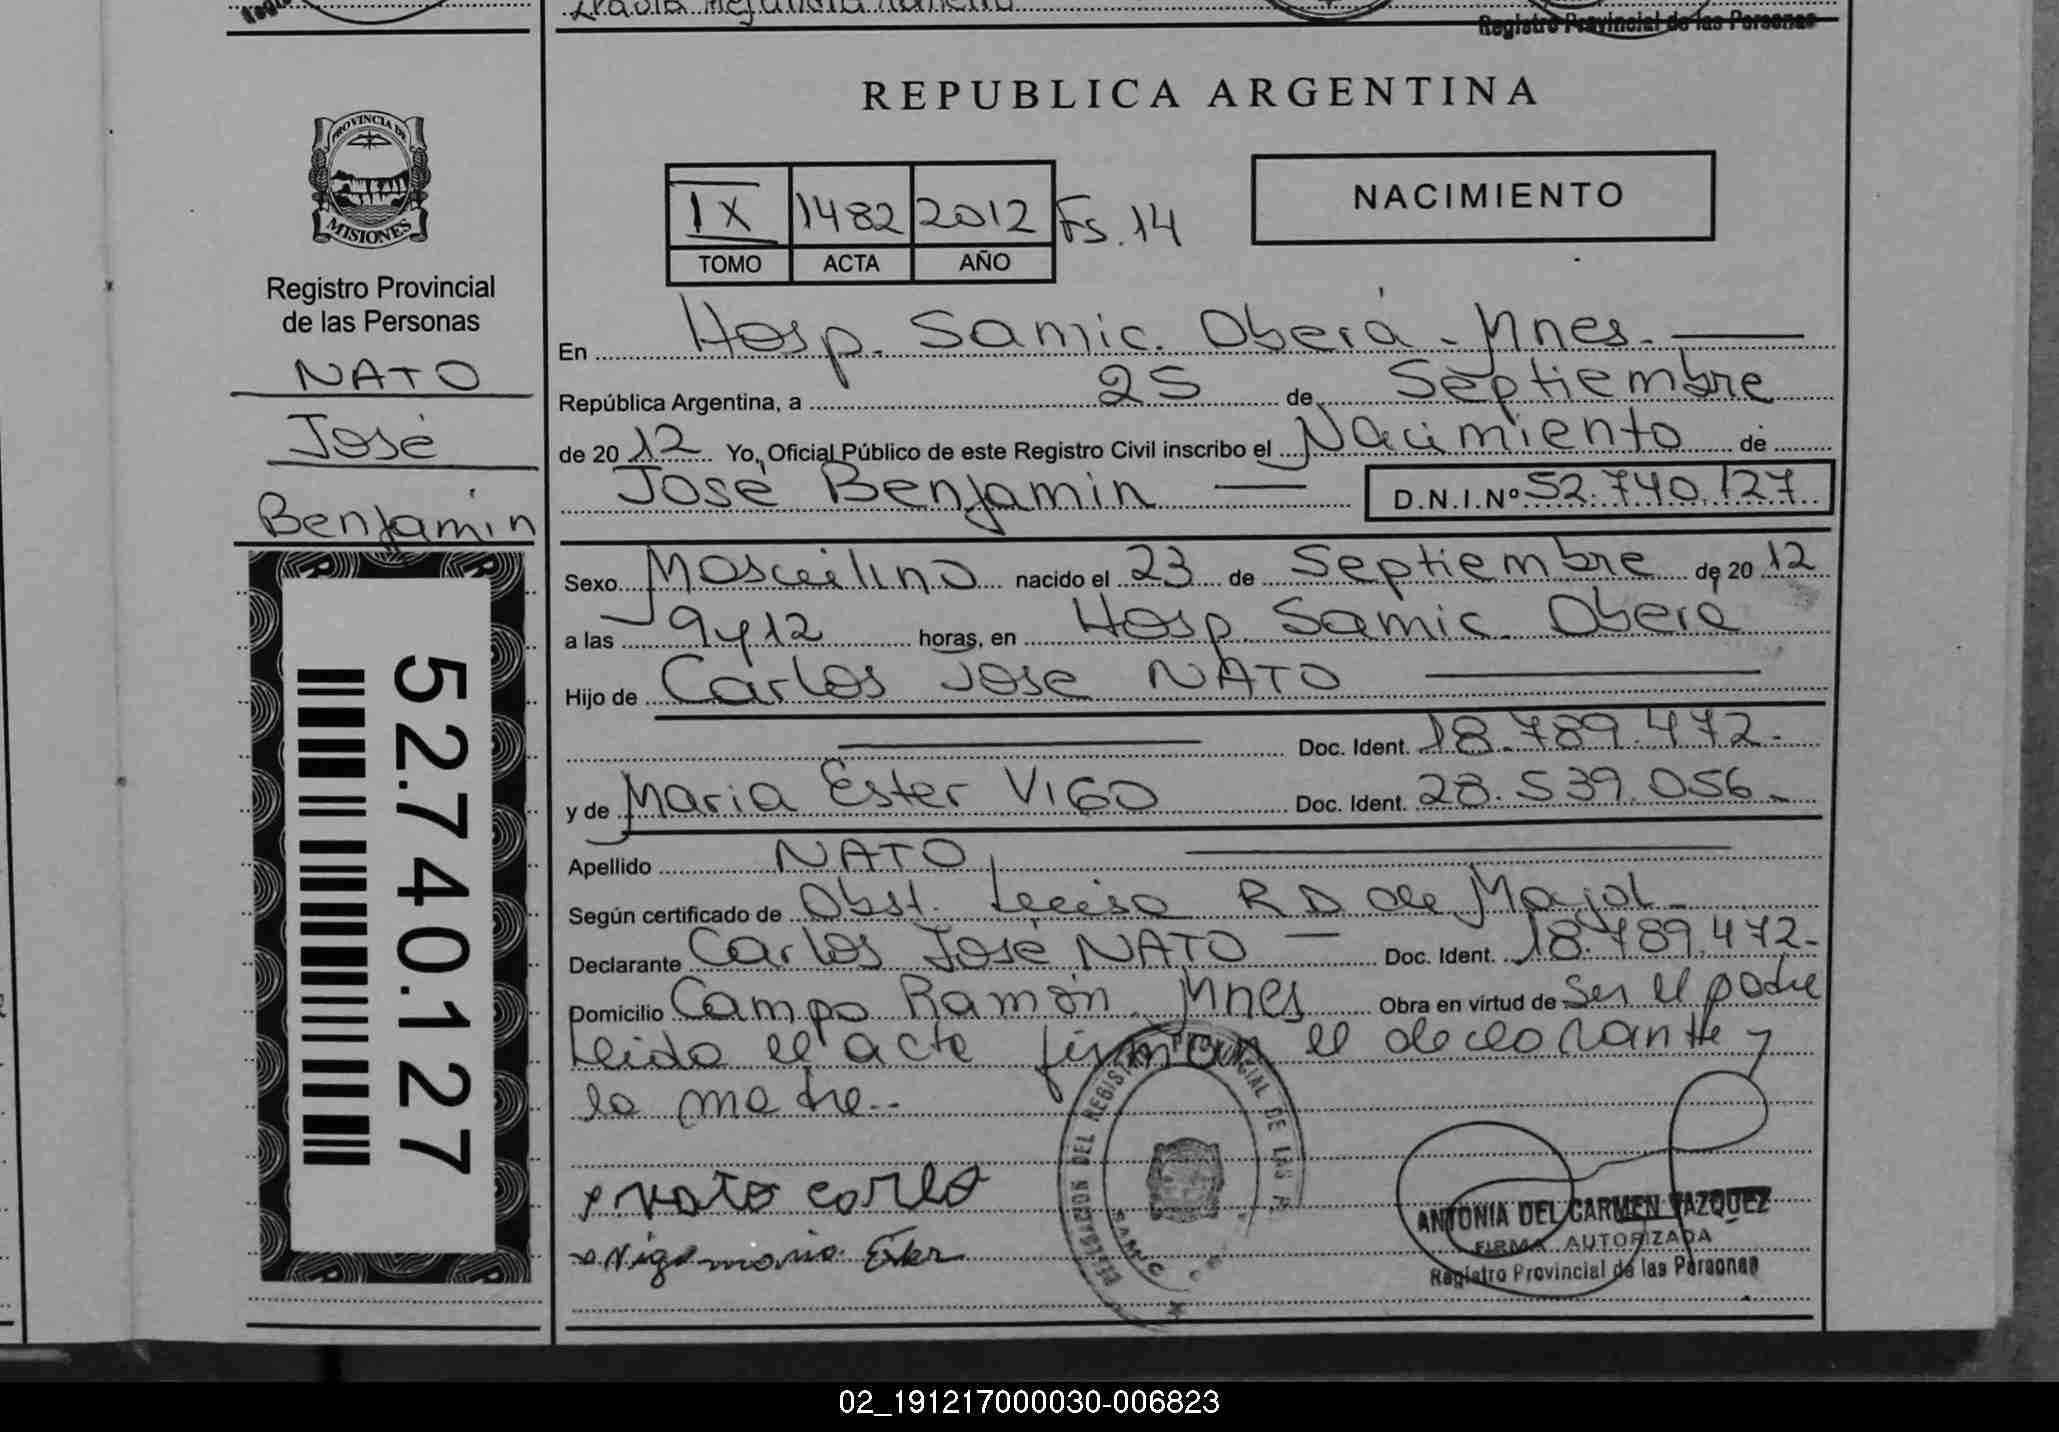 Registro Provincial de las Personas
REPUBLICA ARGENTINA
PROVINCIA DE
MISIONES
Registro Provincial
de las Personas
NATO
José
Benjamín
52.740.127
NACIMIENTO
IX 1482 2012 Fs. 14
TOMO ACTA AÑO
En Hosp. Samic. Oberá - Mnes.
República Argentina, a 25 de Septiembre
de 2012 Yo, Oficial Público de este Registro Civil inscribo el Nacimiento de
José Benjamín D.N.I.Nº 52.740.127
Sexo Masculino nacido el 23 de Septiembre de 2012
a las 9 y 12 horas, en Hosp Samic. Oberá
Hijo de Carlos José NATO
Doc. Ident. 18.789.472.-
y de Maria Ester VIGO Doc. Ident. 28.539.056.-
Apellido NATO
Según certificado de Obst. R D de
Declarante Carlos José NATO - Doc. Ident. 18.789.472-
Domicilio Campo Ramón Mnes Obra en virtud de ser el padre
Leida el acta firman el declarante y
la madre..
nato carlo
vigo maria Ester
ANTONIA DEL CARMEN VAZQUEZ
FIRMA AUTORIZADA
Registro Provincial de las Personas
02_191217000030-006823